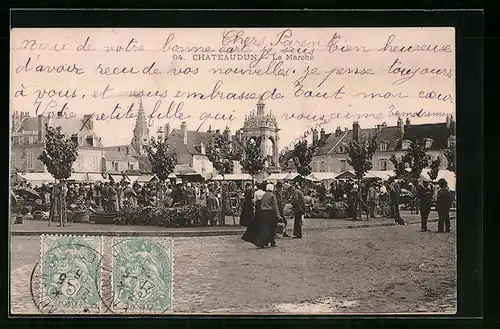 Chers Paren
Merci de votre bonne carte je suis bien heureuse
94. CHATEAUDUN – Le Marché
d'avoir reçu de vos nouvelles, je pense toujours
à vous, et vous embrasse de tout mon cœur
Votre petite fille qui vous aime
POSTES